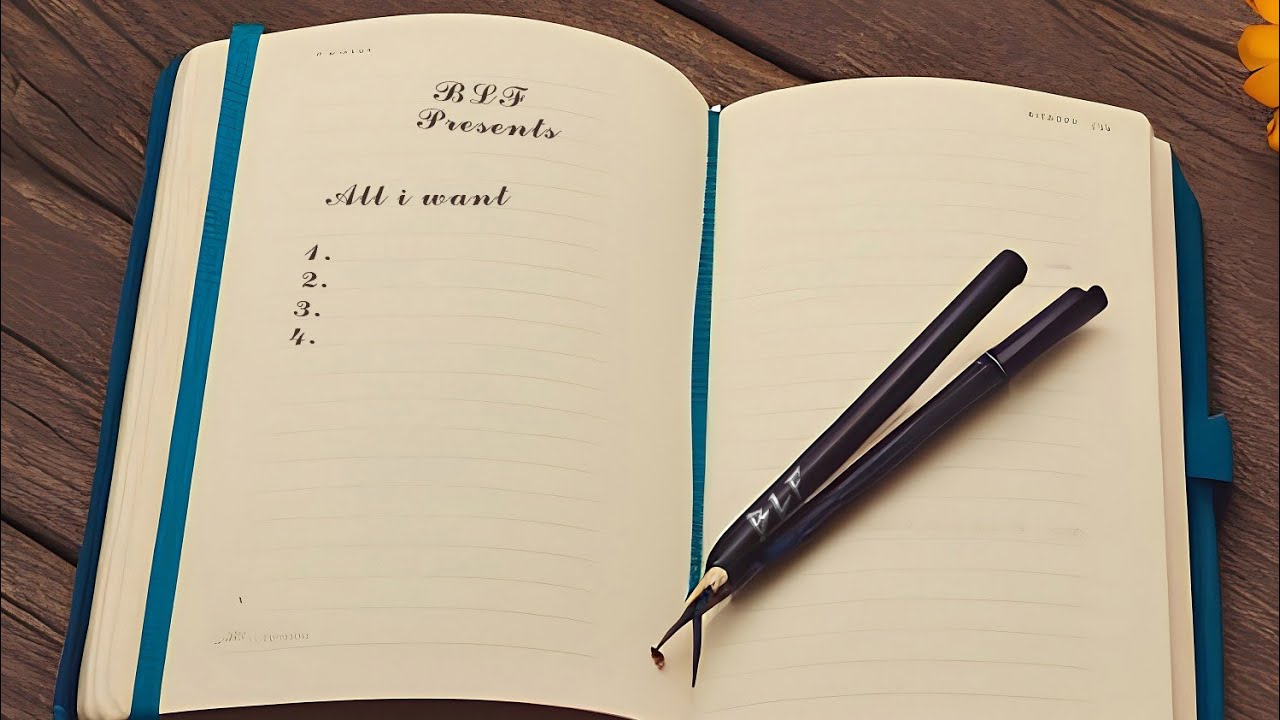 BLF
Presents
All i want
1.
2.
3.
4.
BLF